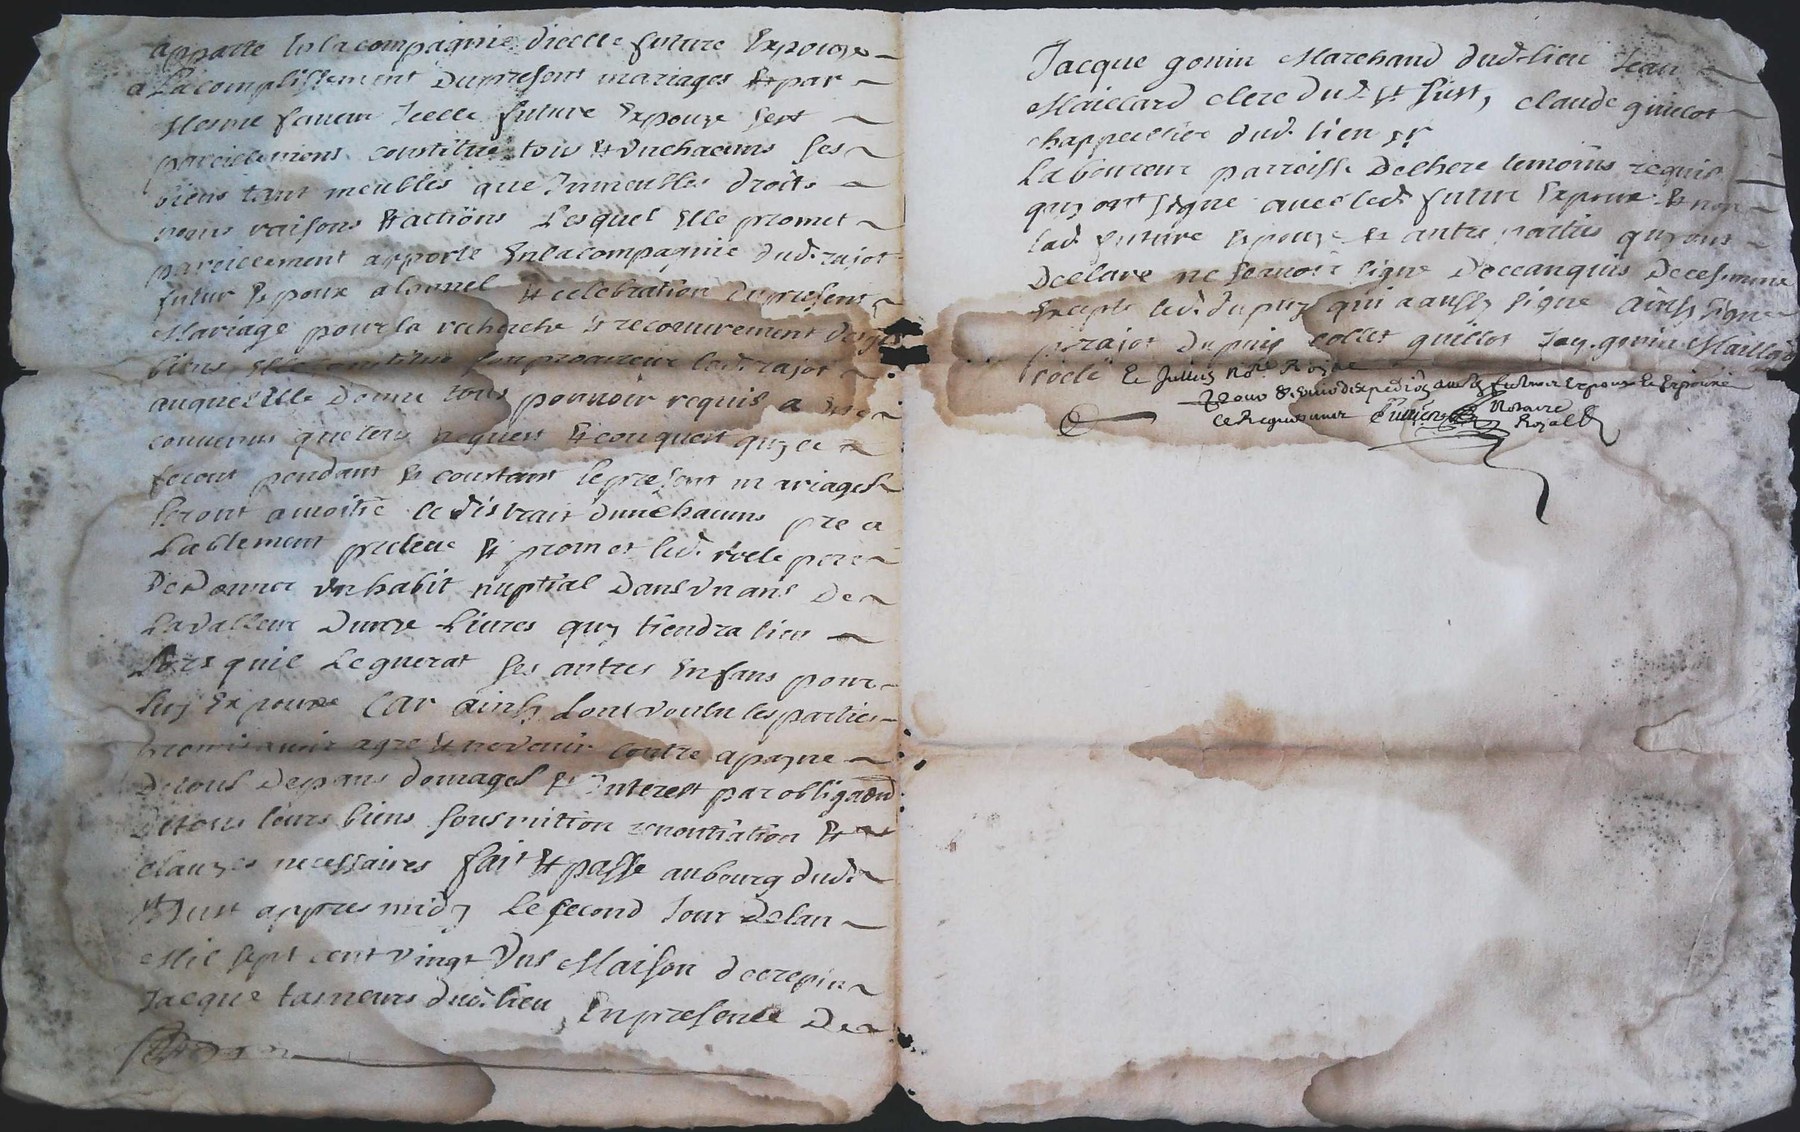 apporte En la compagnie dicelle future Expouze
a Lacomplissement Du present mariages Et par
Mesme faveur Icelle future Expouze sest
pareillemens constitue tous Et Unchacuns ses
biens tant meubles que Inmeubles droits
noms raisons Et actions Lesquel Elle promet
pareillement apporte En la compagnie dud. rajot
futur Expoux a lonnel Et celebration Du present
Mariage pour la recherche Et recouvrement desq
biens Elle constitue son procureur led. rajot
auquel Elle Donne tous pouvoir requis a Este
convenus que les Aquest Et conquest quy ce
feront pendant Et constant le present mariages
seront a moitie le distrait dunchacuns prea
lablement preleve Et promet led. role pere
De Donner Un habit nuptial Dans Un ans De
La valleur Dunze Livres quy tiendra lieu
Lors quil Leguerat ses autres Enfans pour
luy Expouze Car ainsy Lont voulu les parties
promis avoir agre Et ne venir contre a payne
De tous Depans domages Et Interest par obligaon
De tous leurs biens sousmition renontiation Et
clauzes necessaires fait Et passe au bourg dud.
St Just appres midy Le second Jour De lan
Mil sept cent vingt Uns Maison de crepin
Jacque tameurs dud. lieu En presence De
Jacque gonin Marchand dud. lieu Jean
Maillard clerc Dud. St Just, claude guillot
chappellier dud. lieu Et
Laboureur parroisse De here temoins requis
quy ont signe avec led. futur Expoux Et non
lad. future Expouze Et autre parties quy ont
Declare ne scavoir signe De ce anquis De ce somme
Excepte led. dupuy qui a aussy signe Ainsy signe
p. rajot Dupuis collet guillot Jaq. gonin Maillard
role Et Jullien Nore Royal
Pour Et Expedié ausd. futur Expoux Et Expouze
ce Requerant Jullien Notaire
Royal